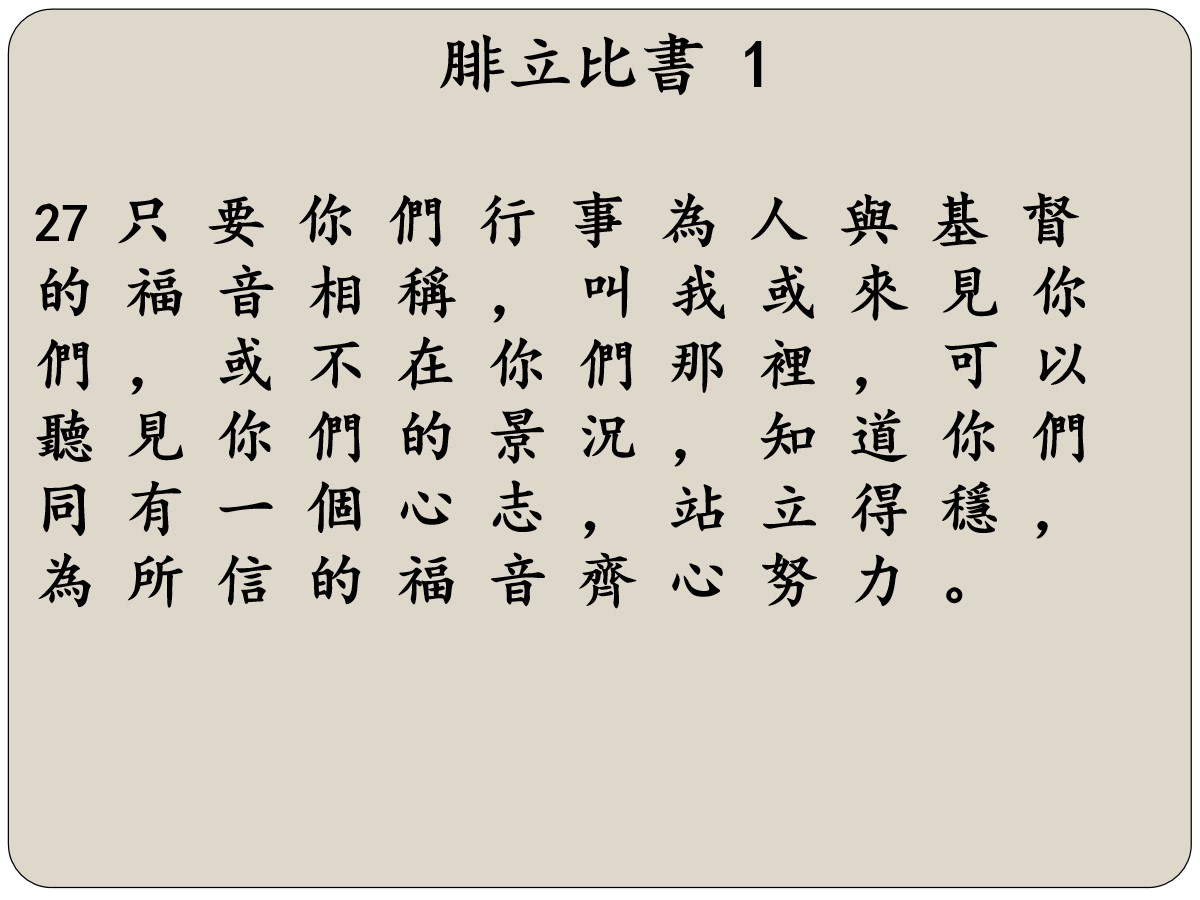 腓立比書 1
27 只 要 你 們 行 事 為 人 與 基 督
的 福 音 相 稱 ， 叫 我 或 來 見 你
們 ， 或 不 在 你 們 那 裡 ， 可 以
聽 見 你 們 的 景 況 ， 知 道 你 們
同 有 一 個 心 志 ， 站 立 得 穩 ，
為 所 信 的 福 音 齊 心 努 力 。